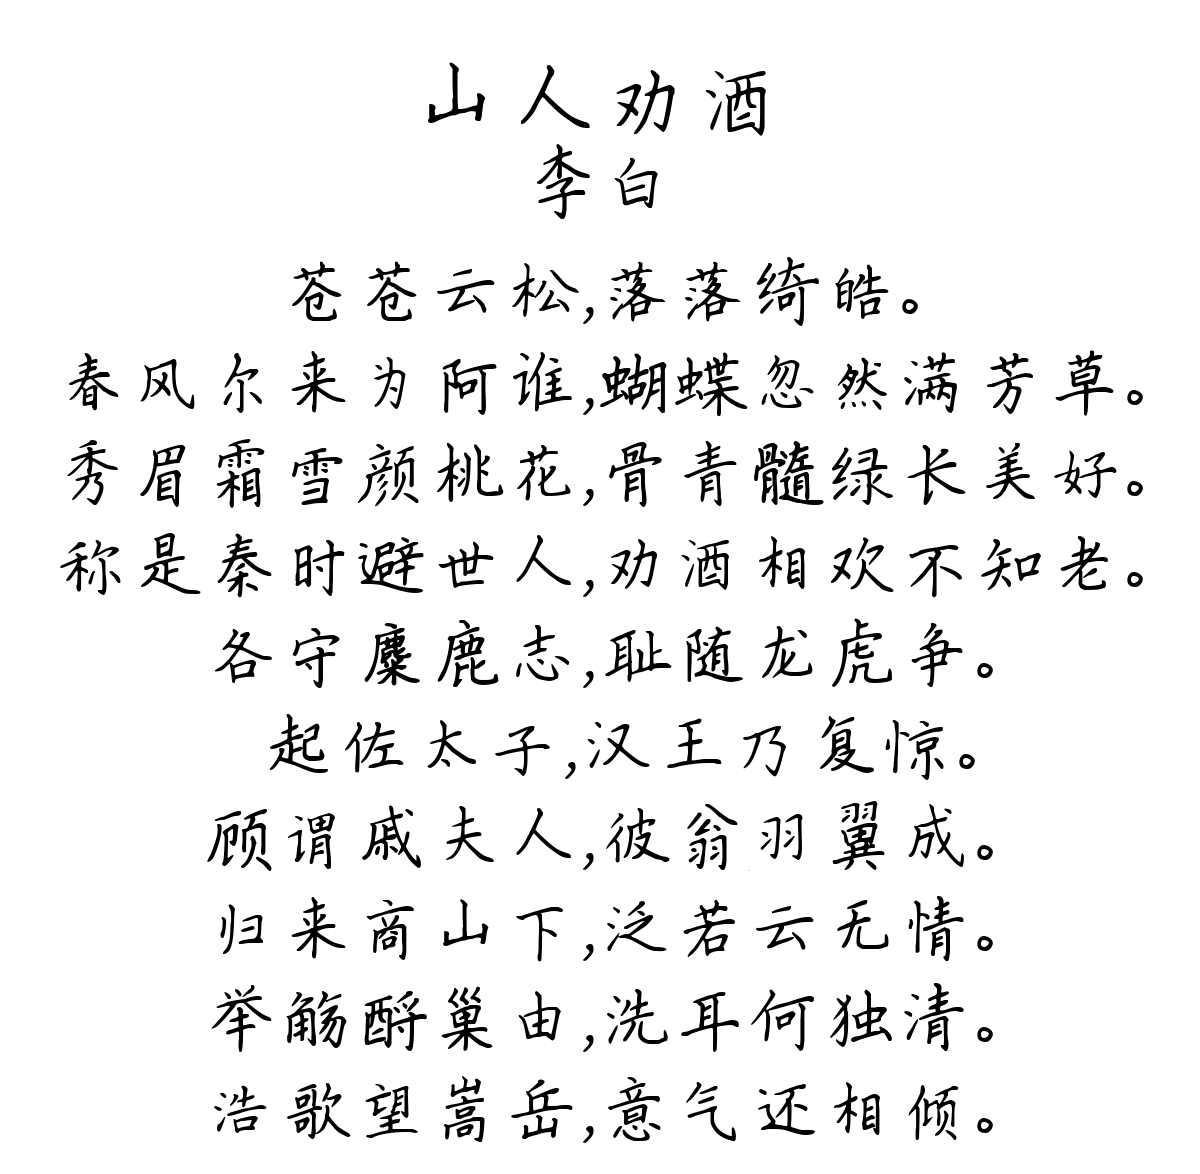 山人劝酒
李白
苍苍云松,落落绮皓。
春风尔来为阿谁,蝴蝶忽然满芳草。
秀眉霜雪颜桃花,骨青髓绿长美好。
称是秦时避世人,劝酒相欢不知老。
各守麋鹿志,耻随龙虎争。
起佐太子,汉王乃复惊。
顾谓戚夫人,彼翁羽翼成。
归来商山下,泛若云无情。
举觞酹巢由,洗耳何独清。
浩歌望嵩岳,意气还相倾。